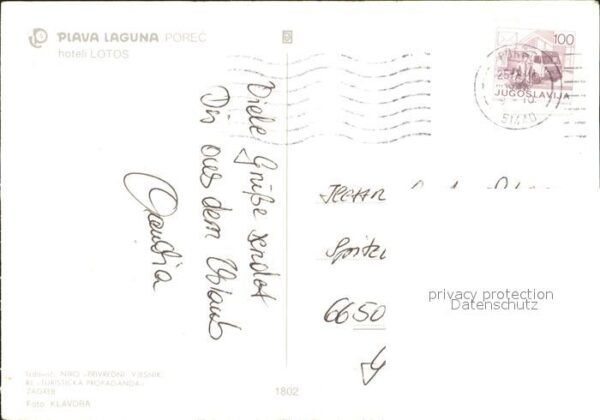 PLAVA LAGUNA POREČ
hoteli LOTOS
100
JUGOSLAVIJA
51440
Viele Grüße sendet
Dir aus dem Urlaub
Claudia
6650
privacy protection
Datenschutz
Izdavač: NIRO »PRIVREDNI VJESNIK«
RJ »TURISTIČKA PROPAGANDA«
ZAGREB
Foto: KLAVORA
1802